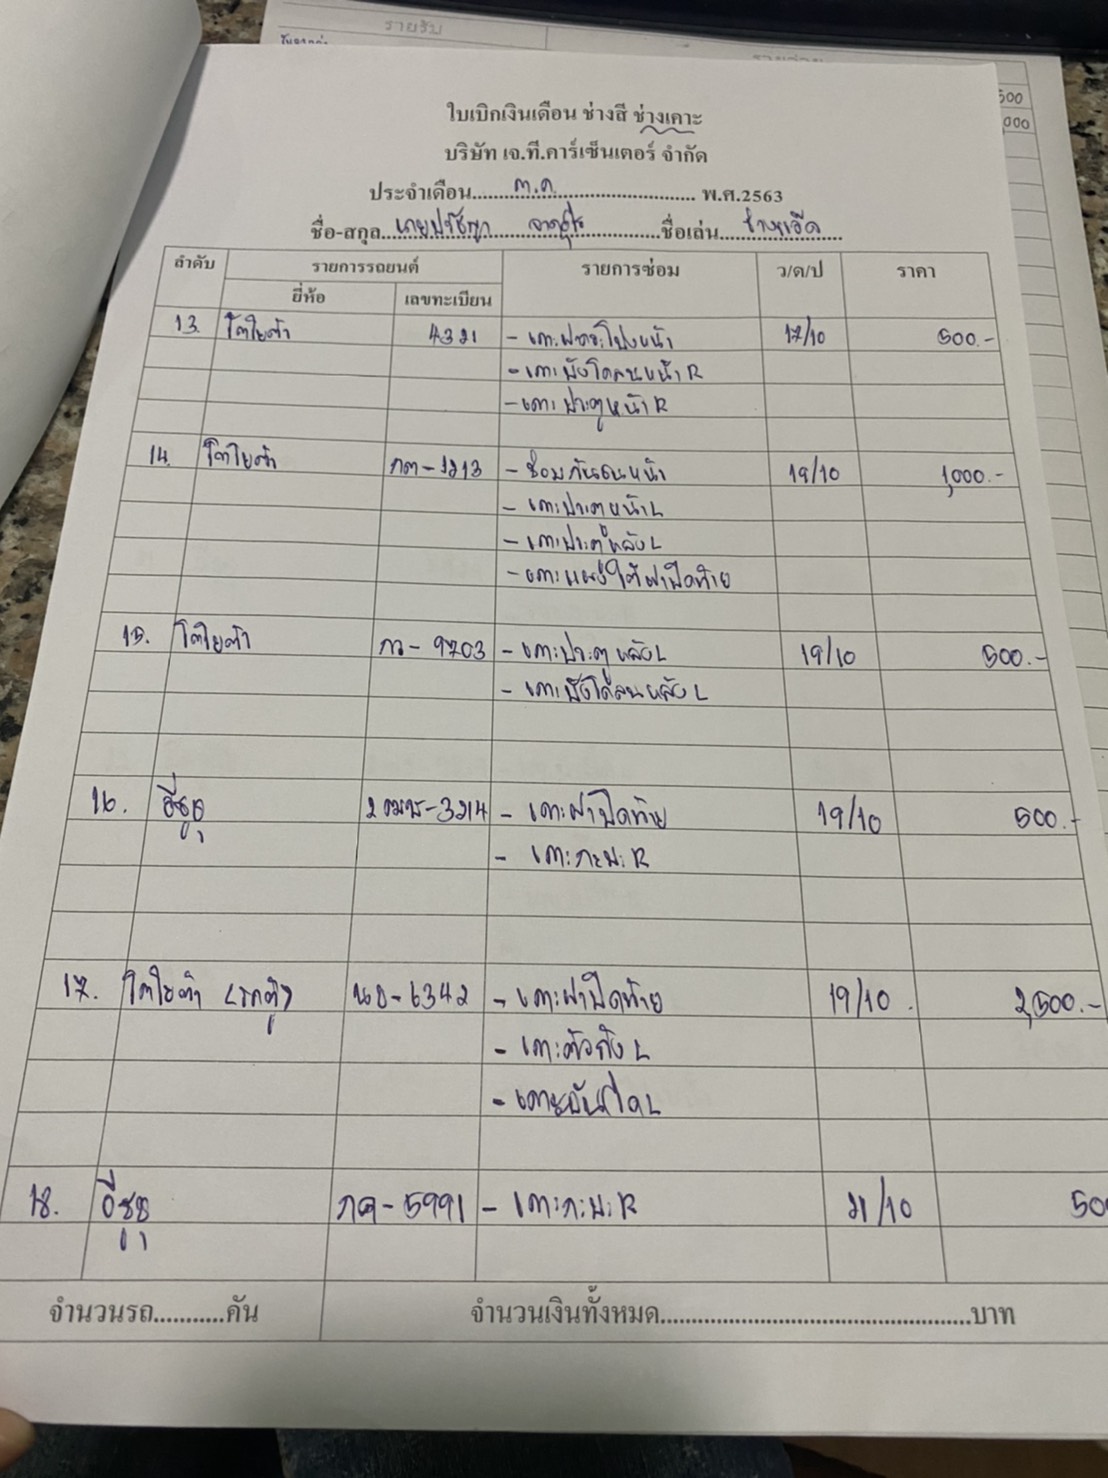 รายรับ
500
000
ใบเบิกเงินเดือน ช่างสี ช่างเคาะ
บริษัท เจ.ที.คาร์เซ็นเตอร์ จำกัด
ประจำเดือน.....ต.ค.....พ.ศ.2563
ชื่อ-สกุล.....ชื่อเล่น.....
ลำดับ รายการรถยนต์ รายการซ่อม ว/ด/ป ราคา
ยี่ห้อ เลขทะเบียน
13. โตโยต้า 4321 - เคาะฝากระโปงหน้า 17/10 500.-
- เคาะบังโคลนหน้า R
- เคาะประตูหน้า R
14. โตโยต้า กต-1213 - ซ่อมกันชนหน้า 19/10 1,000.-
- เคาะประตูหน้า L
- เคาะประตูหลัง L
- เคาะแผงใต้ฝาปิดท้าย
15. โตโยต้า กว-9703 - เคาะประตูหลัง L 19/10 500.-
- เคาะบังโคลนหลัง L
16. อีซูซุ 2ฒฆ-3214 - เคาะฝาปิดท้าย 19/10 500.-
- เคาะกะบะ R
17. โตโยต้า (รถตู้) นข-6342 - เคาะฝาปิดท้าย 19/10 2,500.-
- เคาะตัวถัง L
- เคาะบันได L
18. อีซูซุ กค-5991 - เคาะกะบะ R 21/10 500
จำนวนรถ...........คัน จำนวนเงินทั้งหมด....................บาท